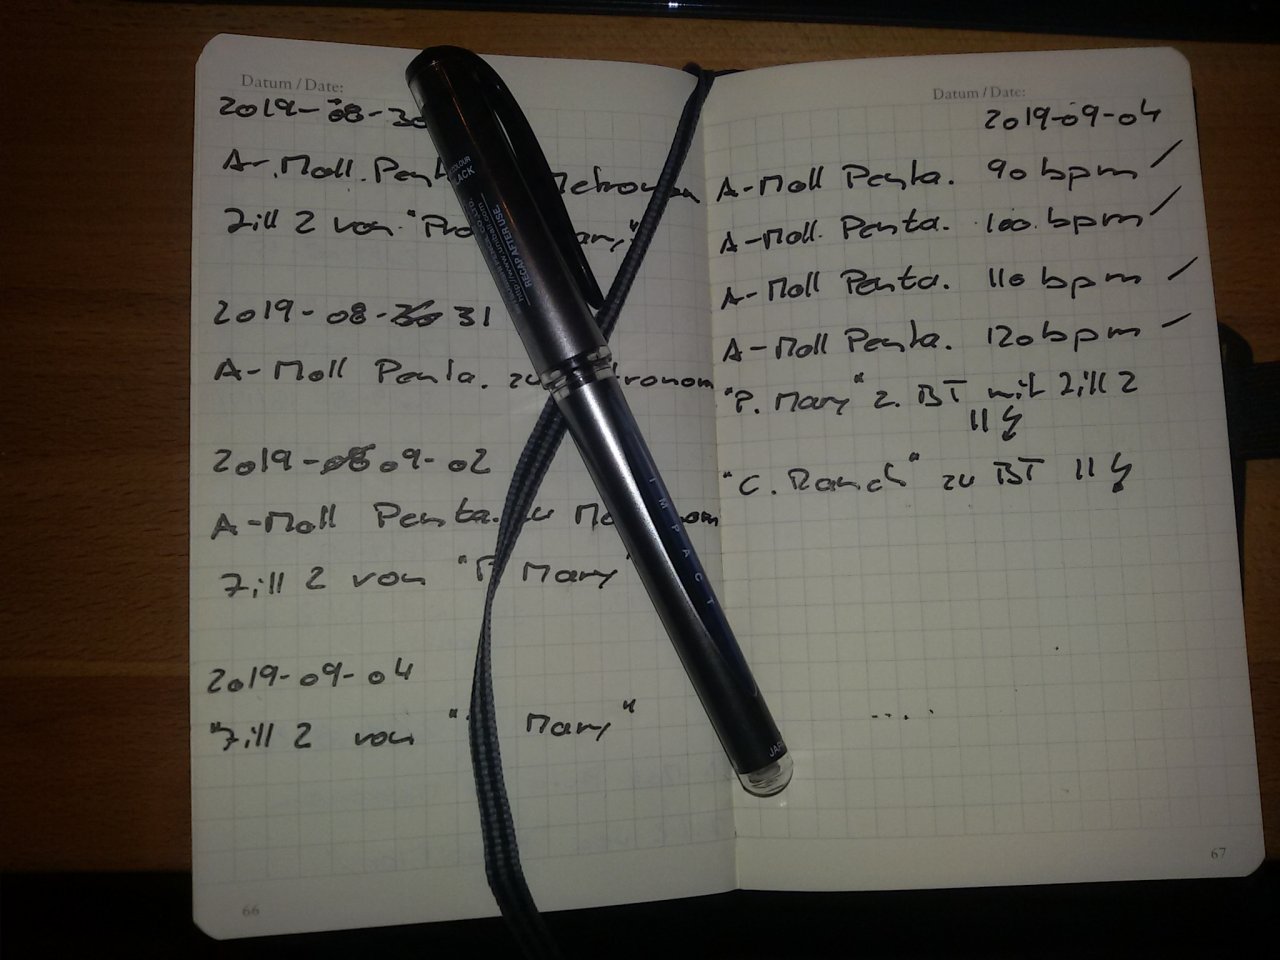 Datum / Date:
2019-08-30
A-Moll Pent Metronom
Fill 2 von "Pro ary"
2019-08-30 31
A-Moll Penta. zu tronom
2019-08 09-02
A-Moll Penta. zu Me nom
Fill 2 von "P Mary"
2019-09-04
"Fill 2 von " Mary"
66
Datum / Date:
2019-09-04
A-Moll Penta. 90 bpm /
A-Moll Penta. 100 bpm /
A-Moll Penta. 110 bpm /
A-Moll Penta. 120 bpm /
"P. Mary" z. BT mit Fill 2
"C. Ranch" zu BT
67
COLOUR
BLACK
RECAP AFTER USE.
IMPACT